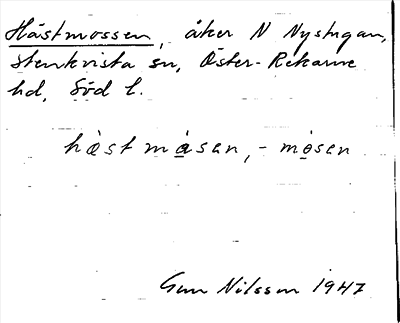 Hästmossen, åker N Nystugan,
Stenkvista sn, Öster-Rekarne
hd, Söd l.
hæ̀stmåsan, -mosen
Gun Nilsson 1947